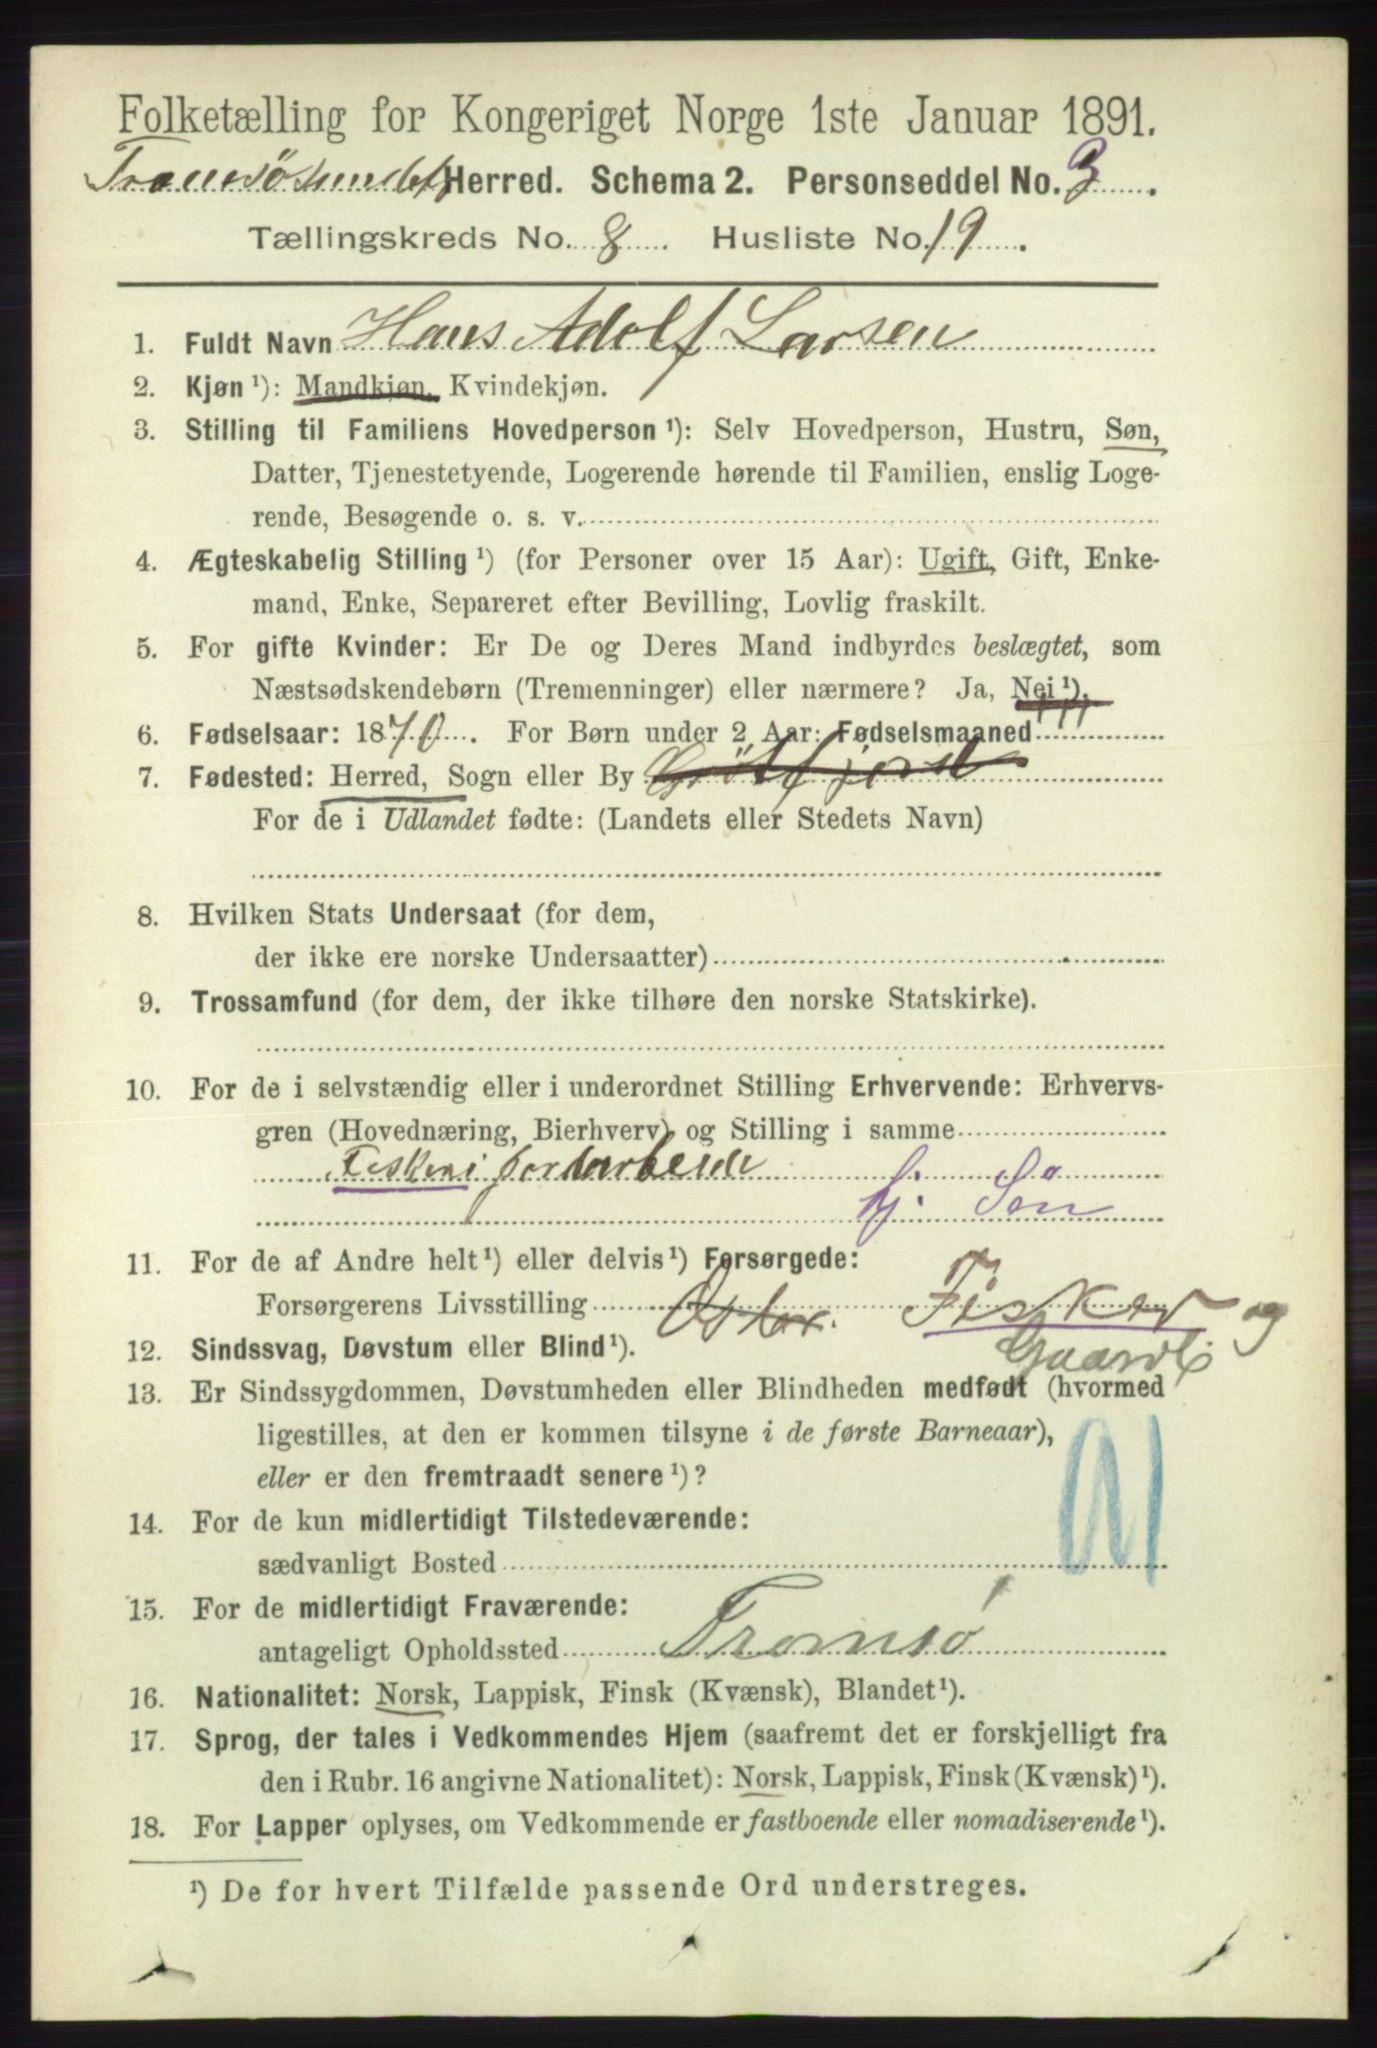 Folketælling for Kongeriget Norge 1ste Januar 1891.
Tromsösundets Herred. Schema 2. Personseddel No. 3.
Tællingskreds No. 8. Husliste No. 19.
1. Fuldt Navn Hans Adolf Larsen
2. Kjøn ¹): Mandkjøn, Kvindekjøn.
3. Stilling til Familiens Hovedperson ¹): Selv Hovedperson, Hustru, Søn,
Datter, Tjenestetyende, Logerende hørende til Familien, enslig Loge-
rende, Besøgende o. s. v.
4. Ægteskabelig Stilling ¹) (for Personer over 15 Aar): Ugift, Gift, Enke-
mand, Enke, Separeret efter Bevilling, Lovlig fraskilt.
5. For gifte Kvinder: Er De og Deres Mand indbyrdes beslægtet, som
Næstsødskendebørn (Tremenninger) eller nærmere? Ja, Nei ¹).
6. Fødselsaar: 1870. For Børn under 2 Aar: Fødselsmaaned
7. Fødested: Herred, Sogn eller By Grötfjord
For de i Udlandet fødte: (Landets eller Stedets Navn)
8. Hvilken Stats Undersaat (for dem,
der ikke ere norske Undersaatter)
9. Trossamfund (for dem, der ikke tilhøre den norske Statskirke).
10. For de i selvstændig eller i underordnet Stilling Erhvervende: Erhvervs-
gren (Hovednæring, Bierhverv) og Stilling i samme
Fiskeri jordarbeide
hj. Søn
11. For de af Andre helt ¹) eller delvis ¹) Forsørgede:
Forsørgerens Livsstilling Fisker og
Gaardb
12. Sindssvag, Døvstum eller Blind ¹).
13. Er Sindssygdommen, Døvstumheden eller Blindheden medfødt (hvormed
ligestilles, at den er kommen tilsyne i de første Barneaar),
eller er den fremtraadt senere ¹)?
14. For de kun midlertidigt Tilstedeværende:
sædvanligt Bosted
15. For de midlertidigt Fraværende:
antageligt Opholdssted Tromsö
16. Nationalitet: Norsk, Lappisk, Finsk (Kvænsk), Blandet ¹).
17. Sprog, der tales i Vedkommendes Hjem (saafremt det er forskjelligt fra
den i Rubr. 16 angivne Nationalitet): Norsk, Lappisk, Finsk (Kvænsk) ¹).
18. For Lapper oplyses, om Vedkommende er fastboende eller nomadiserende ¹).
¹) De for hvert Tilfælde passende Ord understreges.